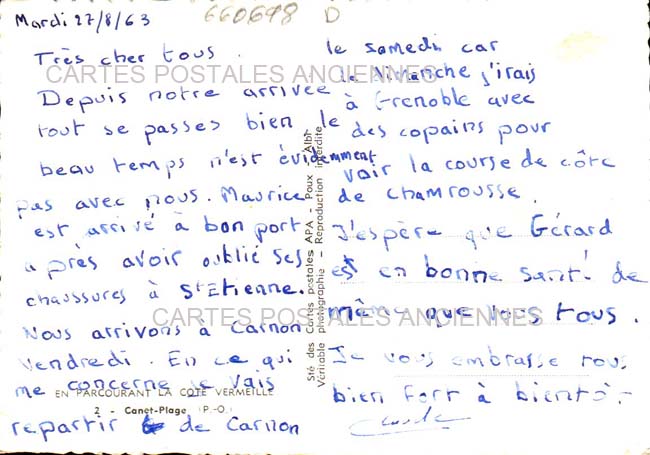 Mardi 27/8/63
660698 D
Très cher tous.
Depuis notre arrivée
tout se passes bien le
beau temps n'est évidemment
pas avec nous. Maurice
est arrivé à bon port
après avoir oublié ses
chaussures à St Etienne.
Nous arrivons à Carnon
Vendredi. En ce qui
me concerne je vais
repartir de Carnon
le samedi car
le Dimanche j'irais
à Grenoble avec
des copains pour
voir la course de côte
de Chamrousse.
J'espère que Gérard
est en bonne santé de
même que vous tous.
Je vous embrasse tous
bien fort à bientôt.
EN PARCOURANT LA COTE VERMEILLE
2 - Canet-Plage (P.-O.)
Sté des cartes postales APA - Poux - Albi
Véritable photographie - Reproduction interdite
CARTES POSTALES ANCIENNES
CARTES POSTALES ANCIENNES